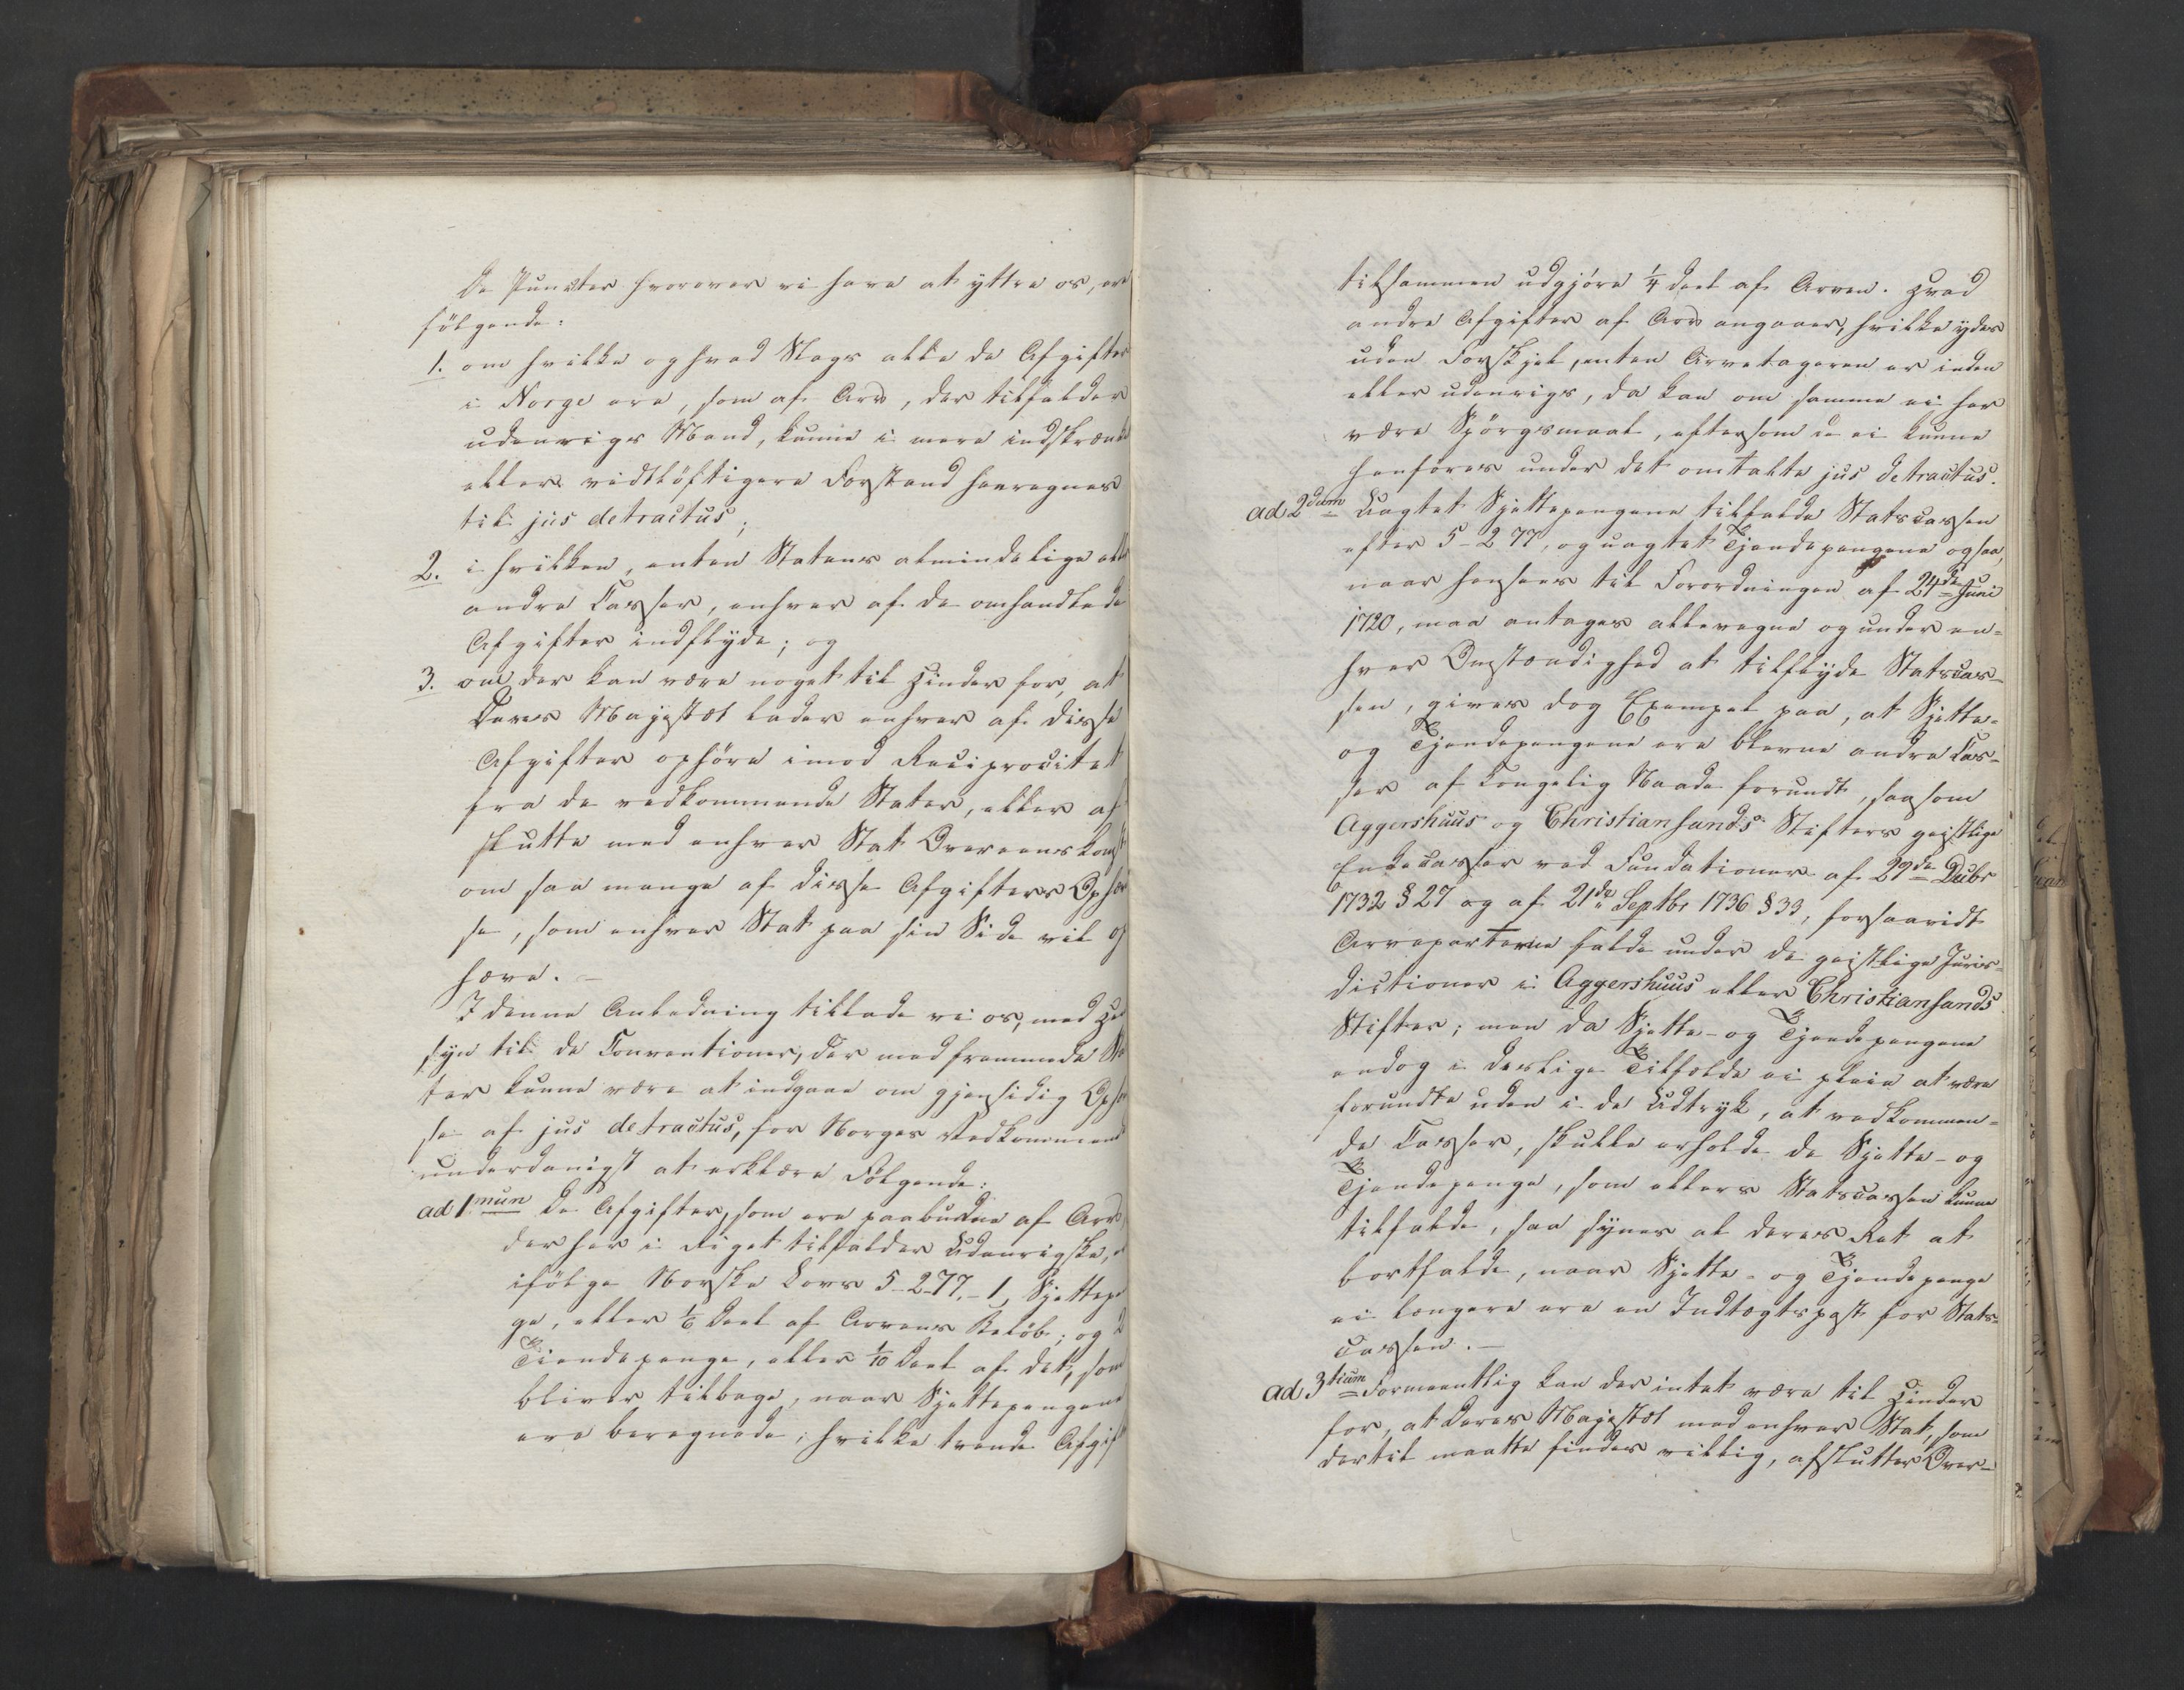 De Puncter hvorover vi have at yttre os, ere
følgende:
1. om hvilke og hvad Slags alle de Afgifter
i Norge ere, som af Arv, der tilfalder
udenrigs Mand, kunne i mere indskrænket
eller vidtløftigere Forstand henregnes
til jus detractus;
2. i hvilken, enten Statens almindelige eller
andre Casser, enhver af de omhandlede
Afgifter indflyde; og
3. om der kan være noget til Hinder for, at
Deres Majestæt lader enhver af disse
Afgifter ophøre imod Reciprocitet
fra de vedkommende Stater, eller af
slutte med enhver Stat Overeenskomst
om saa mange af disse Afgifters Ophør
se, som enhver Stat paa sin Side vil op
hæve. —
I denne Anledning tillade vi os, med Hen
syn til de Conventioner, der med fremmede Sta
ter kunne være at indgaae om gjensidig Ophør
se af jus detractus, for Norges Vedkommende
underdanigst at erklære Følgende:
ad 1mum De Afgifter, som ere paabudne af Arv,
der her i Riget tilfalder Udenrigske, er
ifølge Norske Lovs 5-2-77.- 1, Sjettepen
ge, eller 1/6 Deel af Arvens Beløb; og 2
Tiendepenge, eller 1/10 Deel af det, som
bliver tilbage, naar Sjettepengene
ere beregnede; hvilke tvende Afgift
tilsammen udgjøre 1/4 Deel af Arven. Hvad
andre Afgifter af Arv angaaer, hvilke ydes
uden Forskjel, enten Arvetageren er inden
eller udenrigs, da kan om samme ei her
være Spørgsmaal, eftersom de ei kunne
henføres under det omtalte jus detractus.
ad 2dum Uagtet Sjettepengene tilfalde Statscassen
efter 5-2 77, og uagtet Tjendepengene ogsaa,
naar hensees til Forordningen af 24de Juni
1720, maa antages allevegne og under en=
hver Omstændighed at tilflyde Statscas=
sen, gives dog Exempel paa, at Sjette=
og Tjendepengene ere blevne andre Cas=
ser af Kongelig Naade forundt, saasom
Aggershuus og Christiansands Stifters geistlige
Enkecasser ved Fundationer af 29de Dubr
1732 § 27 og af 21de Septbr 1736 § 33, forsaavidt
Arveparterne falde under de geistlige Juris=
dictioner i Aggershuus eller Christiansands
Stifter; men da Sjette- og Tjendepengene
endog i deslige Tilfælde ei pleie at være
forundte uden i de Udtryk, at vedkommen=
de Casser, skulle erholde de Sjette- og
Tjendepenge, som ellers Statscassen kunne
tilfalde, saa synes al deres Ret at
bortfalde, naar Sjette- og Tjendepenge
ei længere ere en Indtægtspost for Stats=
cassen. —
ad 3tium Formeentlig kan der intet være til Hinder
for, at Deres Majestæt med enhver Stat, som
dertil maatte findes villig, afslutter Over=